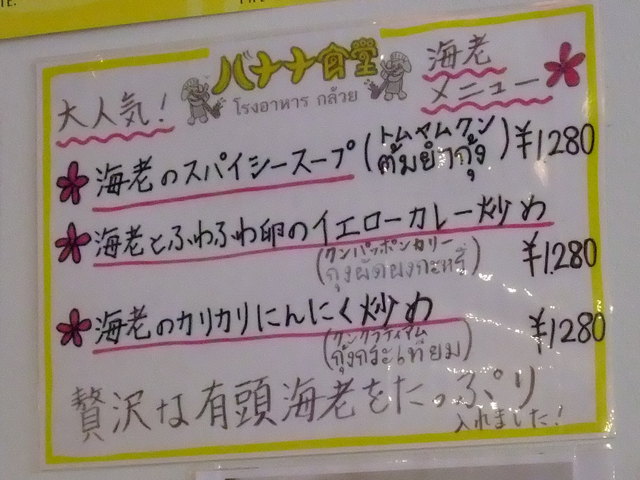 大人気！
バナナ食堂
โรงอาหาร กล้วย
海老
メニュー
海老のスパイシースープ(トムヤムクン ต้มยำกุ้ง) ¥1280
海老とふわふわ卵のイエローカレー炒め
(クンパッポンカリー กุ้งผัดผงกะหรี่) ¥1280
海老のカリカリにんにく炒め ¥1280
(クンクラティアム กุ้งกระเทียม)
贅沢な有頭海老をたっぷり
入れました！